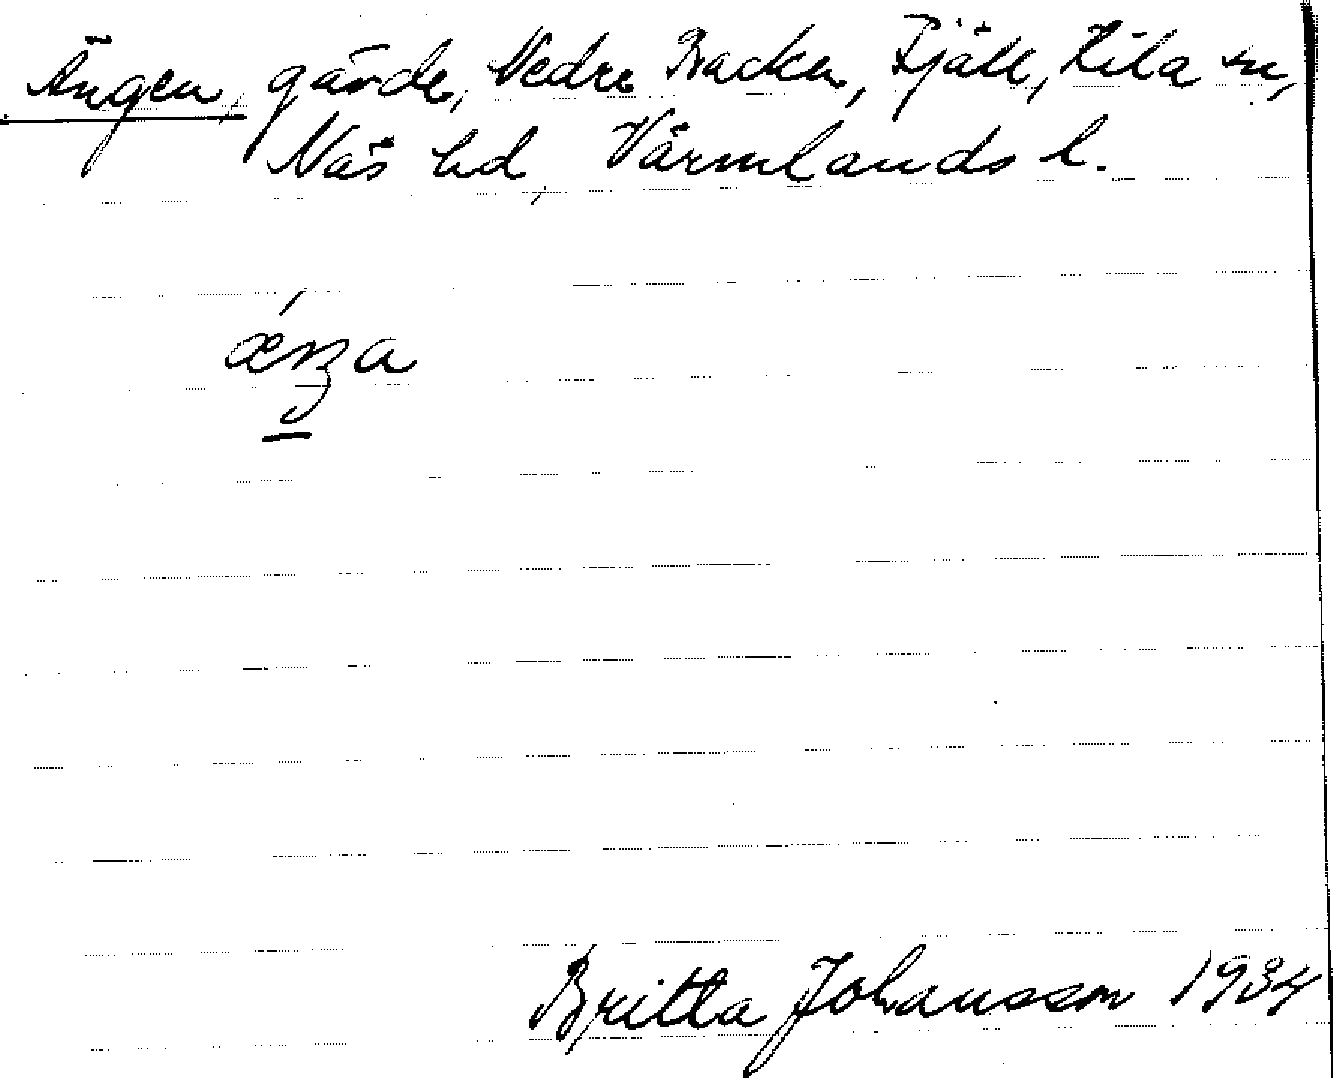 Ängen, gärde, Nedre Backen, Fjäll, Kila sn,
Näs hd, Värmlands l.
Britta Johansson 1934